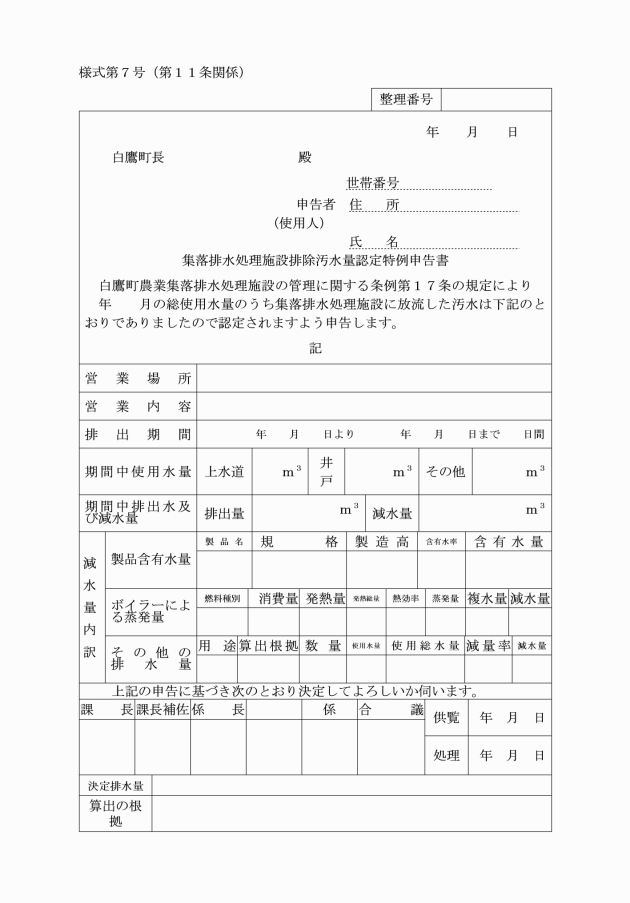 様式第７号（第１１条関係）
整理番号
年　　月　　日
白鷹町長　　　　　　　　　　殿
世帯番号
申告者　住　　所
（使用人）
氏　　名
集落排水処理施設排除汚水量認定特例申告書
白鷹町農業集落排水処理施設の管理に関する条例第１７条の規定により
年　　月の総使用水量のうち集落排水処理施設に放流した汚水は下記のと
おりでありましたので認定されますよう申告します。
記
営業場所
営業内容
排出期間　年　月　日より　年　月　日まで　日間
期間中使用水量　上水道　m³　井戸　m³　その他　m³
期間中排出水及び減水量　排出量　m³　減水量　m³
減水量内訳
製品含有水量　製品名　規格　製造高　含有水率　含有水量
ボイラーによる蒸発量　燃料種別　消費量　発熱量　発熱総量　熱効率　蒸発量　複水量　減水量
その他の排水量　用途　算出根拠　数量　使用水量　使用総水量　減量率　減水量
上記の申告に基づき次のとおり決定してよろしいか伺います。
課長　課長補佐　係長　係　合議　供覧　年　月　日
処理　年　月　日
決定排水量
算出の根拠